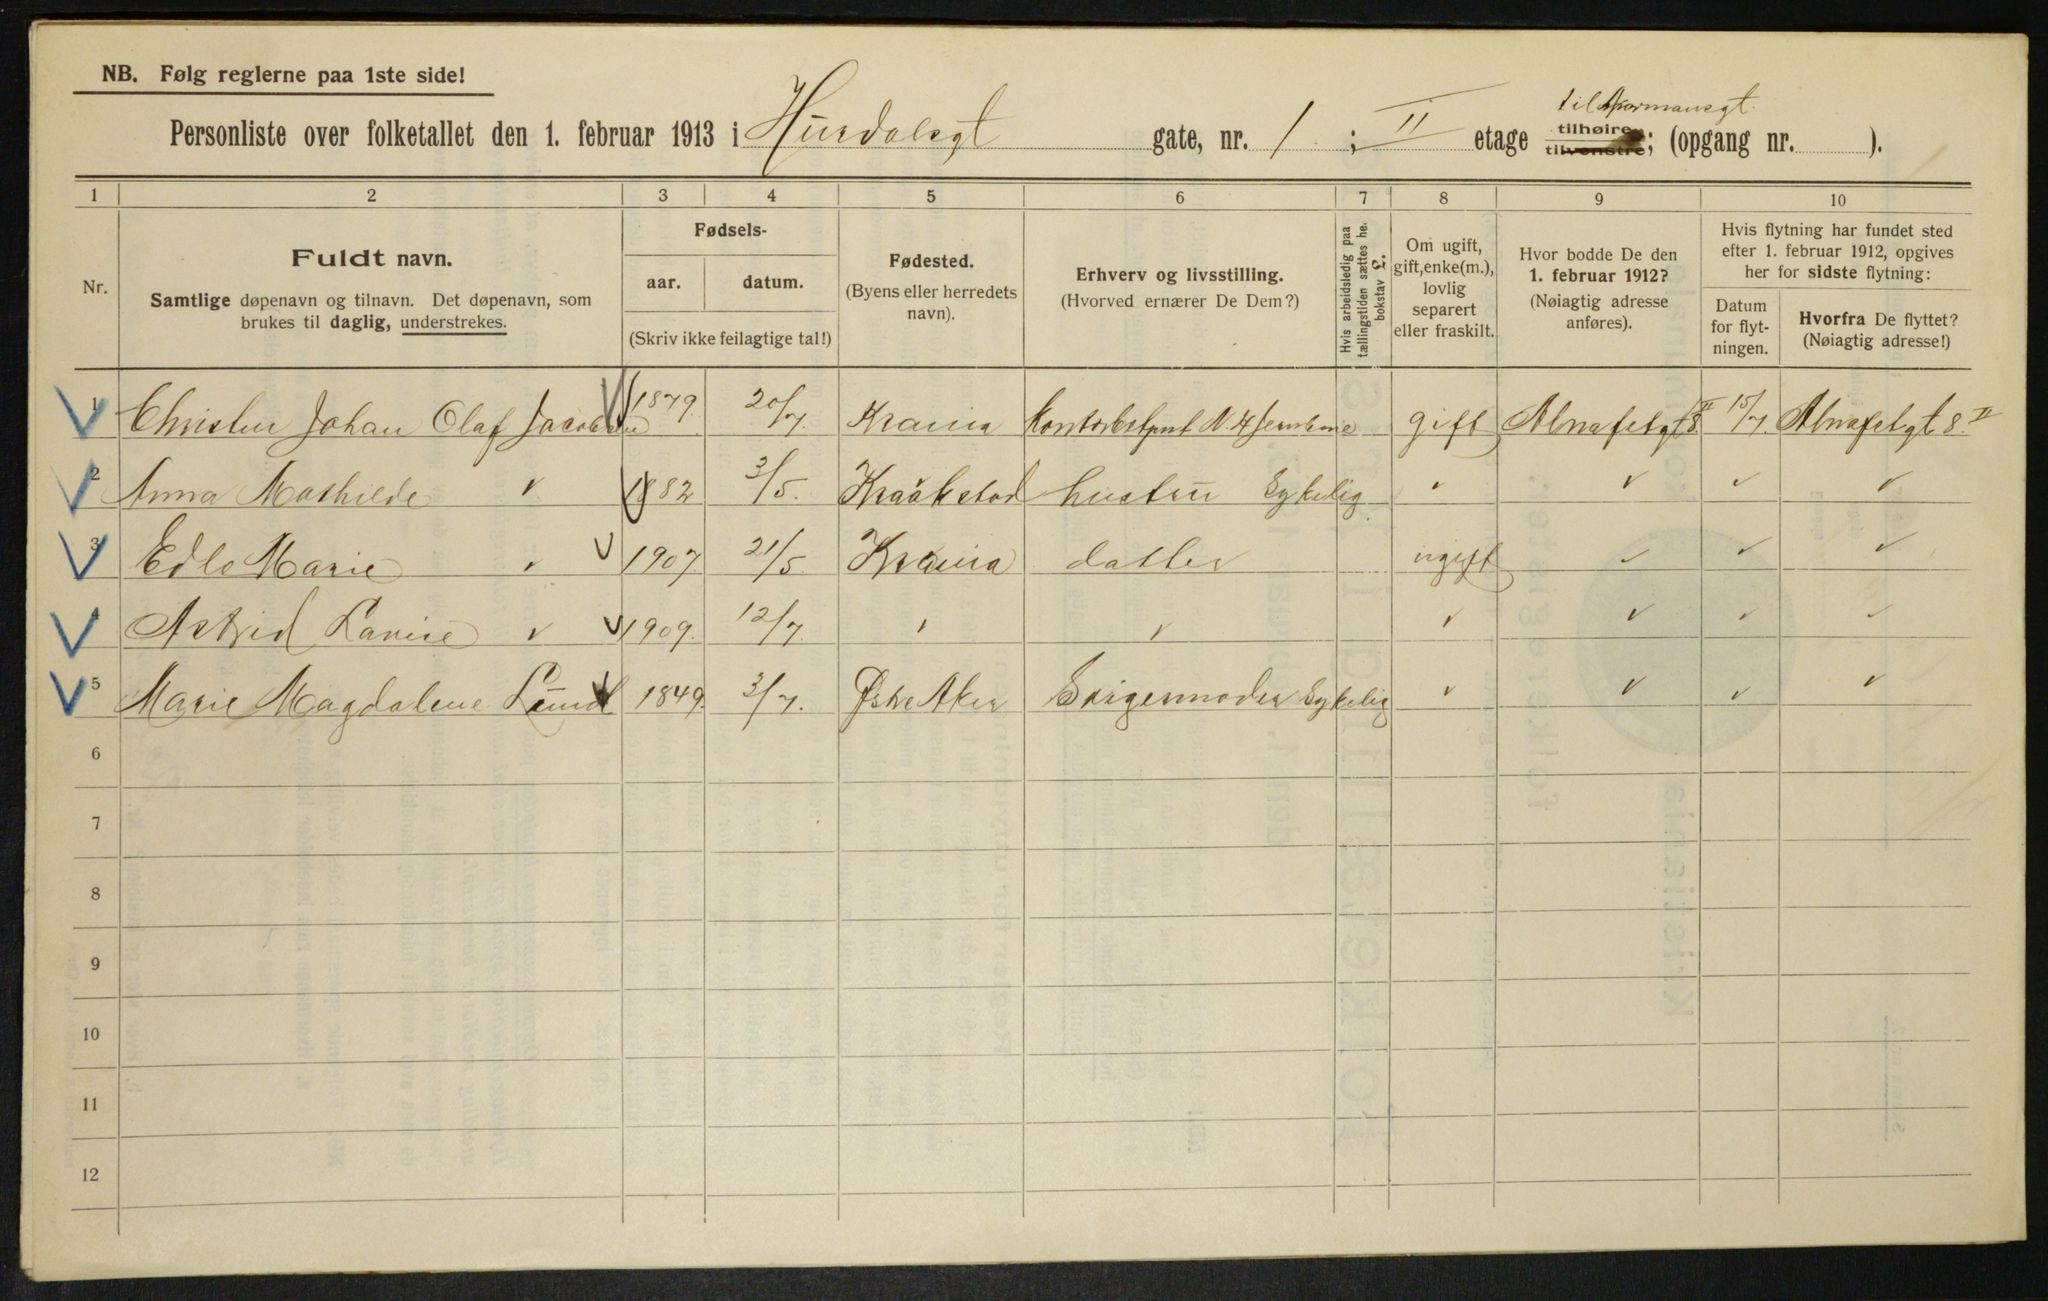 NB. Følg reglerne paa 1ste side!
Personliste over folketallet den 1. februar 1913 i Hurdalsgt gate, nr. 1 ; II etage tilhøire, tilvenstre; (opgang nr. ).
1 2 3 4 5 6 7 8 9 10
Nr.
Fuldt navn.
Samtlige døpenavn og tilnavn. Det døpenavn, som
brukes til daglig, understrekes.
Fødsels-
aar. datum.
(Skriv ikke feilagtige tal!)
Fødested.
(Byens eller herredets
navn).
Erhverv og livsstilling.
(Hvorved ernærer De Dem?)
Hvis arbeidsledig paa
tællingstiden sættes he.
bokstav L.
Om ugift,
gift, enke(m.),
lovlig
separert
eller fraskilt.
Hvor bodde De den
1. februar 1912?
(Nøiagtig adresse
anføres).
Hvis flytning har fundet sted
efter 1. februar 1912, opgives
her for sidste flytning:
Datum
for flyt-
ningen.
Hvorfra De flyttet?
(Nøiagtig adresse!)
1 Johan Olaf Jacobsen 1879 20/7 Krania gift Alnafetgt 8 II 15/7 Alnafetgt 8 II
2 Anna Mathilde 1882 3/5 Kraákstad hustru Sykelig
3 Edle Marie 1907 21/5 Krania datter ugift
4 Astrid Lovise 1909 12/7
5 Marie Magdalene Lund 1849 3/7 Østre Aker Svigermoder Sykelig
6
7
8
9
10
11
12